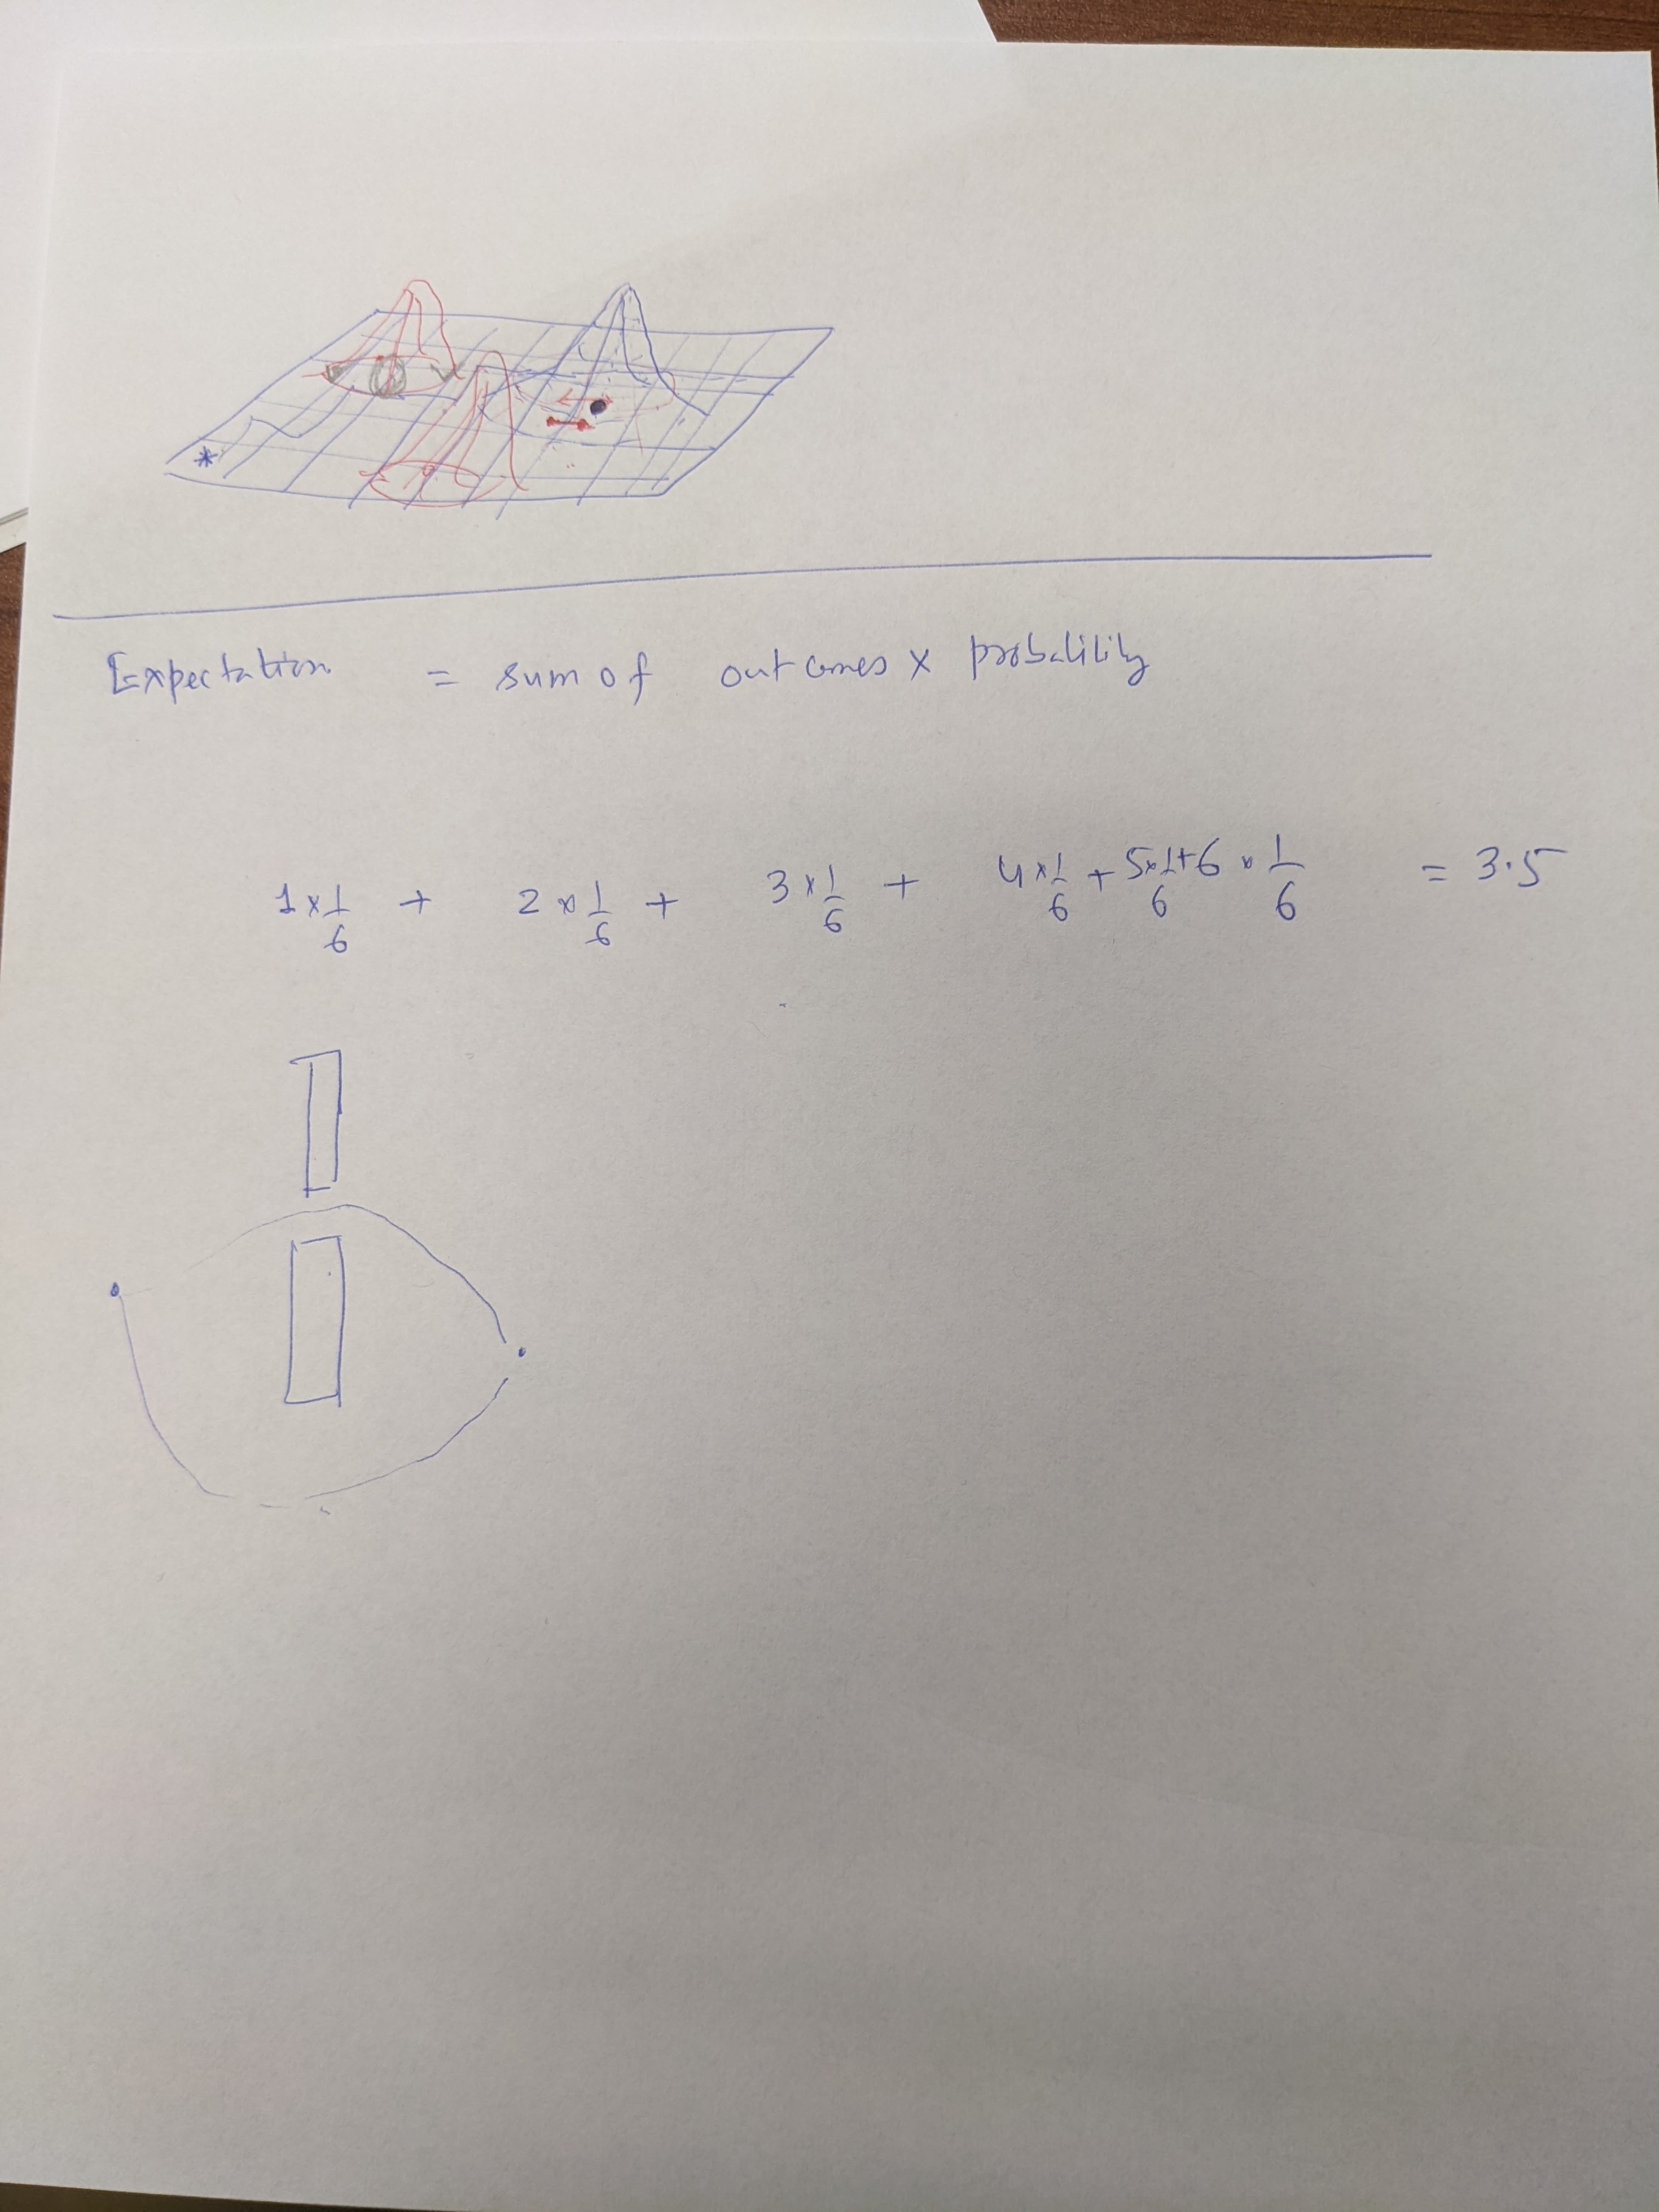 Expectation = sum of outcomes × probability
1 × 1/6 + 2 × 1/6 + 3 × 1/6 + 4 × 1/6 + 5 × 1/6 + 6 × 1/6 = 3.5